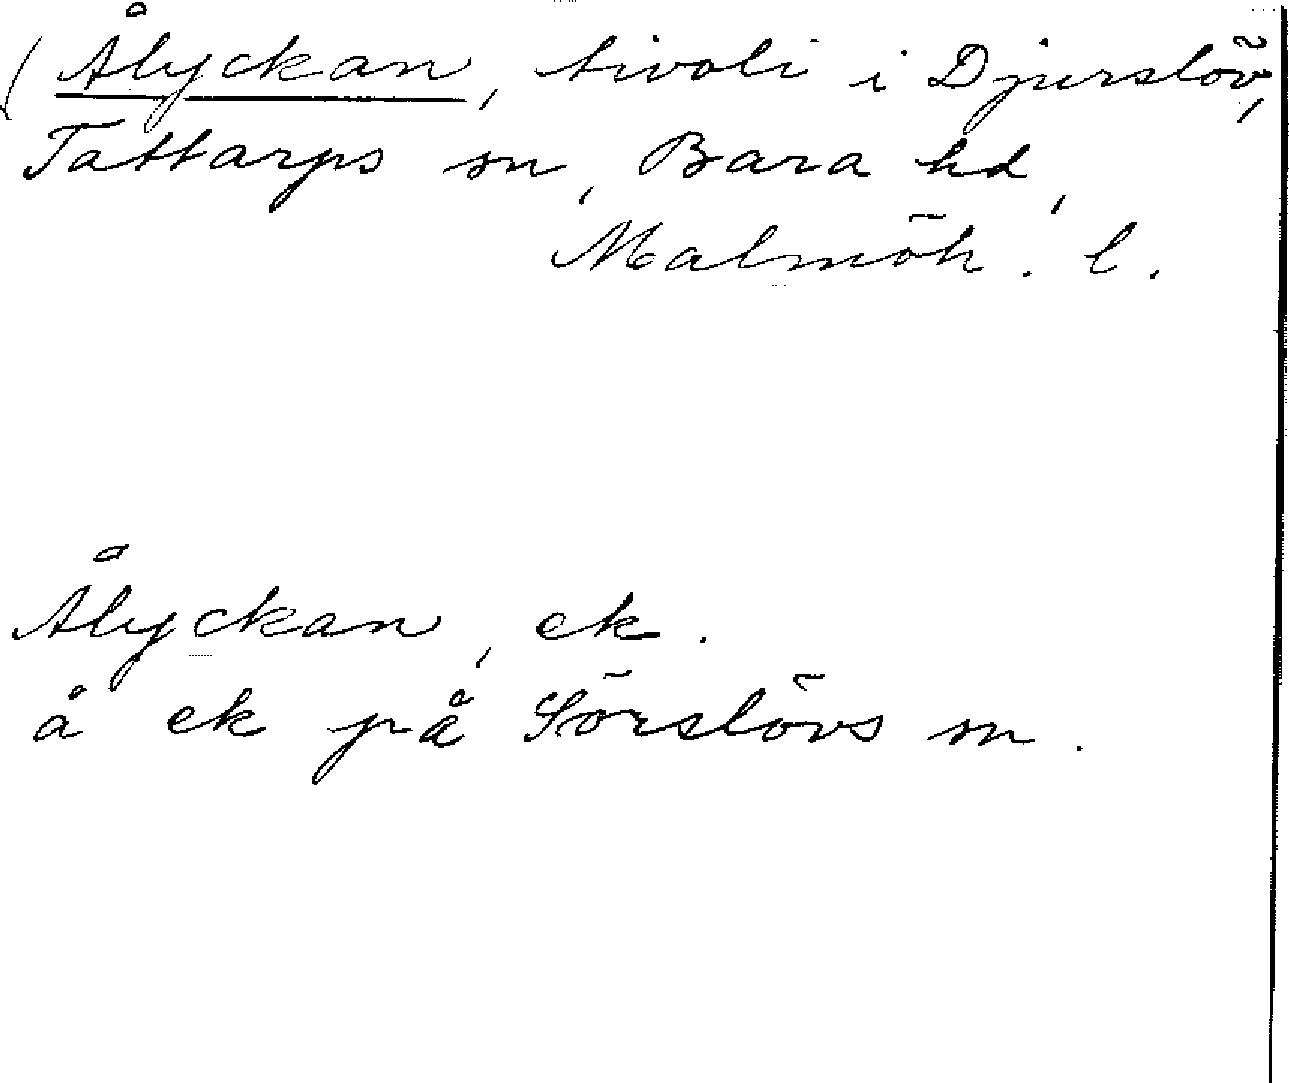 (Ålyckan, tivoli i Djurslöv,
Tottarps sn, Bara hd,
Malmöh. l.
Ålyckan, ek.
å ek på Sörslövs sn.